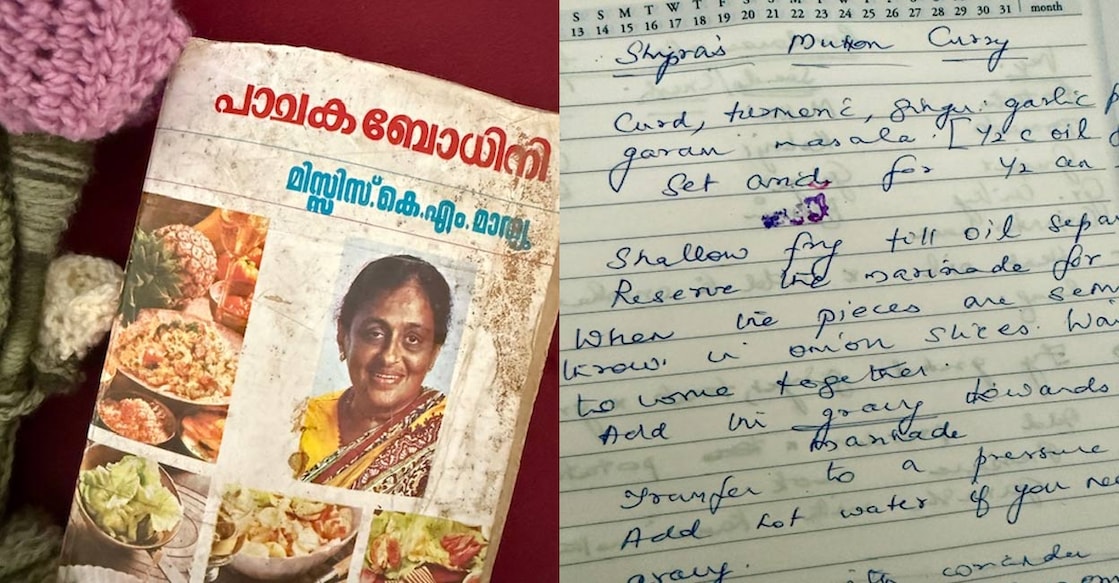 പാചക ബോധിനി
മിസ്സിസ്. കെ. എം. മാത്യു
S S M T W T F S S M T W T F S S M T
13 14 15 16 17 18 19 20 21 22 23 24 25 26 27 28 29 30 31 month
Shipra's Mutton Curry
Curd, turmeric, ginger garlic
garam masala [1/2 c oil
Set and for 1/2 an
Shallow fry till oil separ
Reserve the marinade for
When the pieces are sem
throw in onion slices. Wai
to come together.
Add the gravy towards
marinade
Transfer to a pressure
Add hot water if you nee
gravy.
with coriander